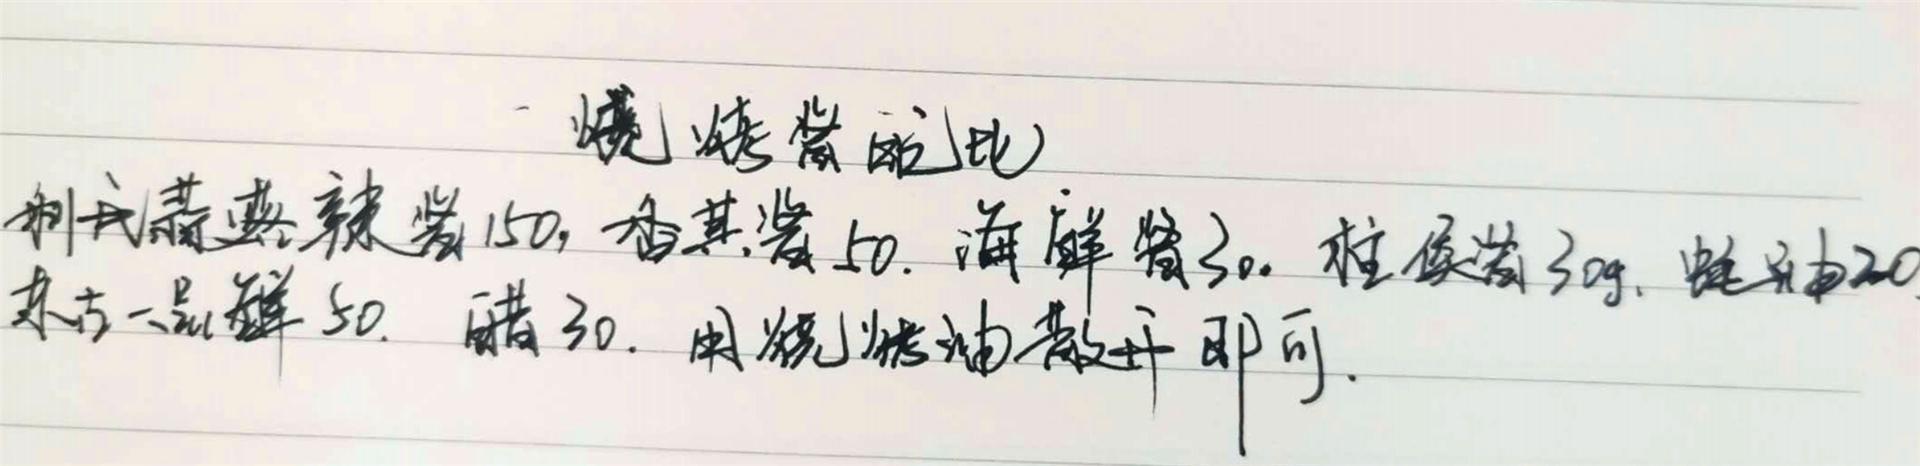 烧烤酱配比
利民蒜蓉辣酱150, 香其酱50. 海鲜酱30. 柱侯酱30g. 蚝油20.
东古一品鲜50. 醋30. 用烧烤油散开即可.